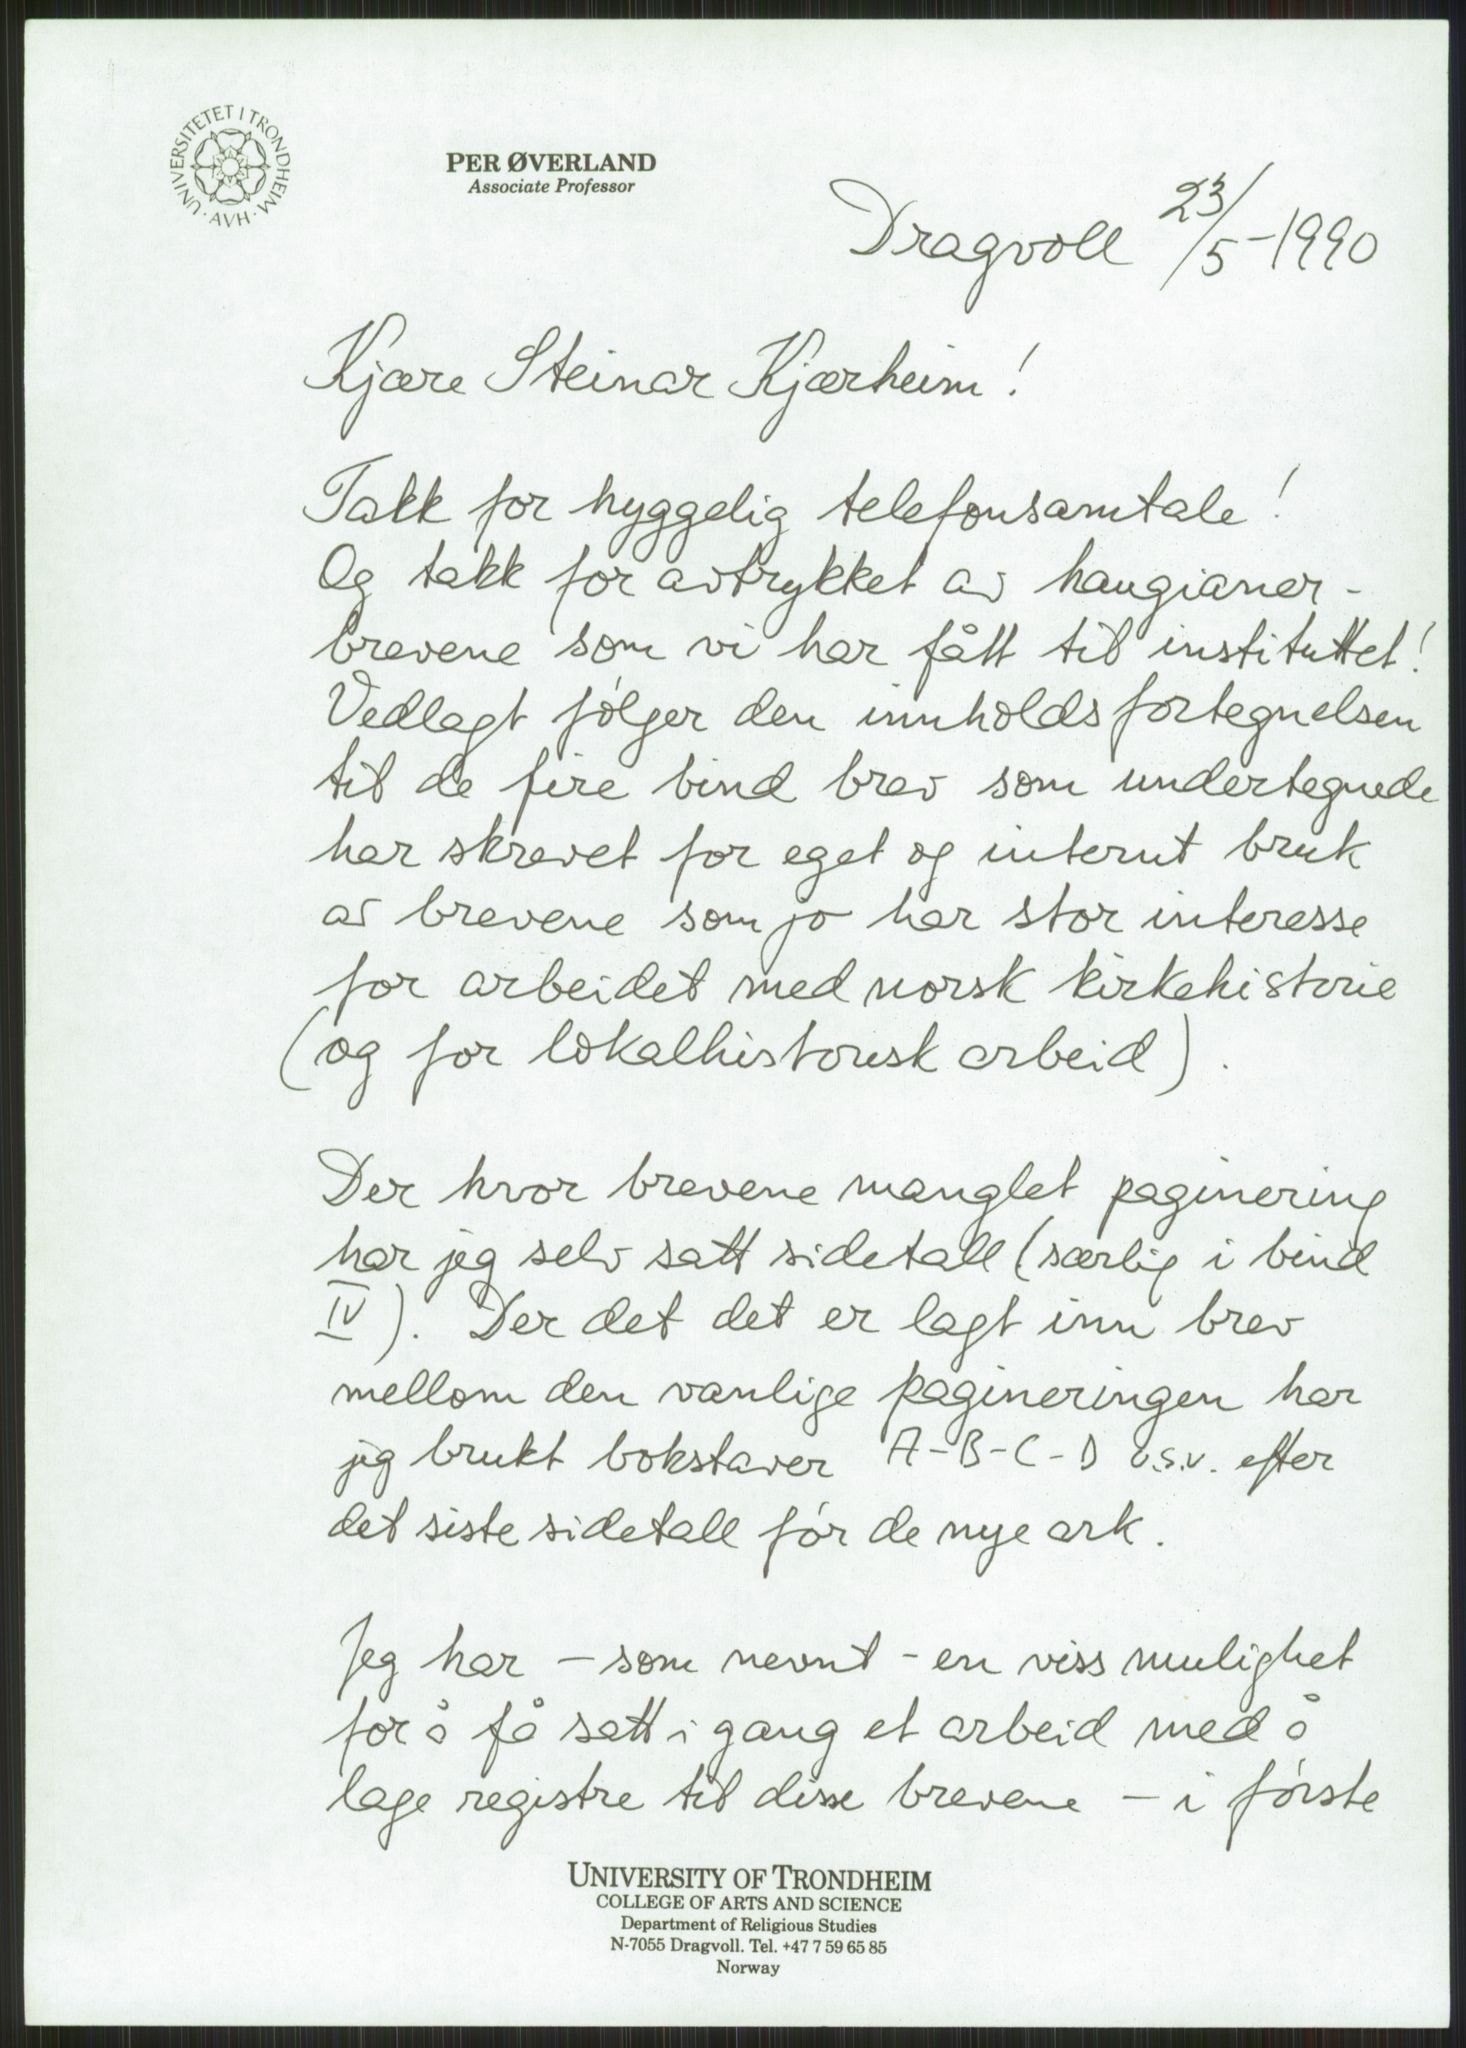 UNIVERSITETET I TRONDHEIM · AVH ·
PER ØVERLAND
Associate Professor
Dragvoll 23/5-1990
Kjære Steinar Kjærheim!
Takk for hyggelig telefonsamtale!
Og takk for avtrykket av haugianer-
brevene som vi har fått til instituttet!
Vedlagt følger den innholdsfortegnelsen
til de fire bind brev som undertegnede
har skrevet for eget og internt bruk
av brevene som jo har stor interesse
for arbeidet med norsk kirkehistorie
(og for lokalhistorisk arbeid).
Der hvor brevene manglet paginering
har jeg selv satt sidetall (særlig i bind
IV). Der det det er lagt inn brev
mellom den vanlige pagineringen har
jeg brukt bokstaver A-B-C-D o.s.v. efter
det siste sidetall før de nye ark.
Jeg har - som nevnt - en viss mulighet
for å få satt i gang et arbeid med å
lage registre til disse brevene - i første
UNIVERSITY OF TRONDHEIM
COLLEGE OF ARTS AND SCIENCE
Department of Religious Studies
N-7055 Dragvoll. Tel. +47 7 59 65 85
Norway